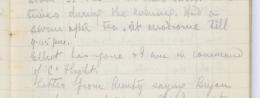 times during the evening. Had a
swim after tea. At aerodrome till
Elliot has gone & I am in command
of "C" Flight.
Letter from Aunty saying Bryan